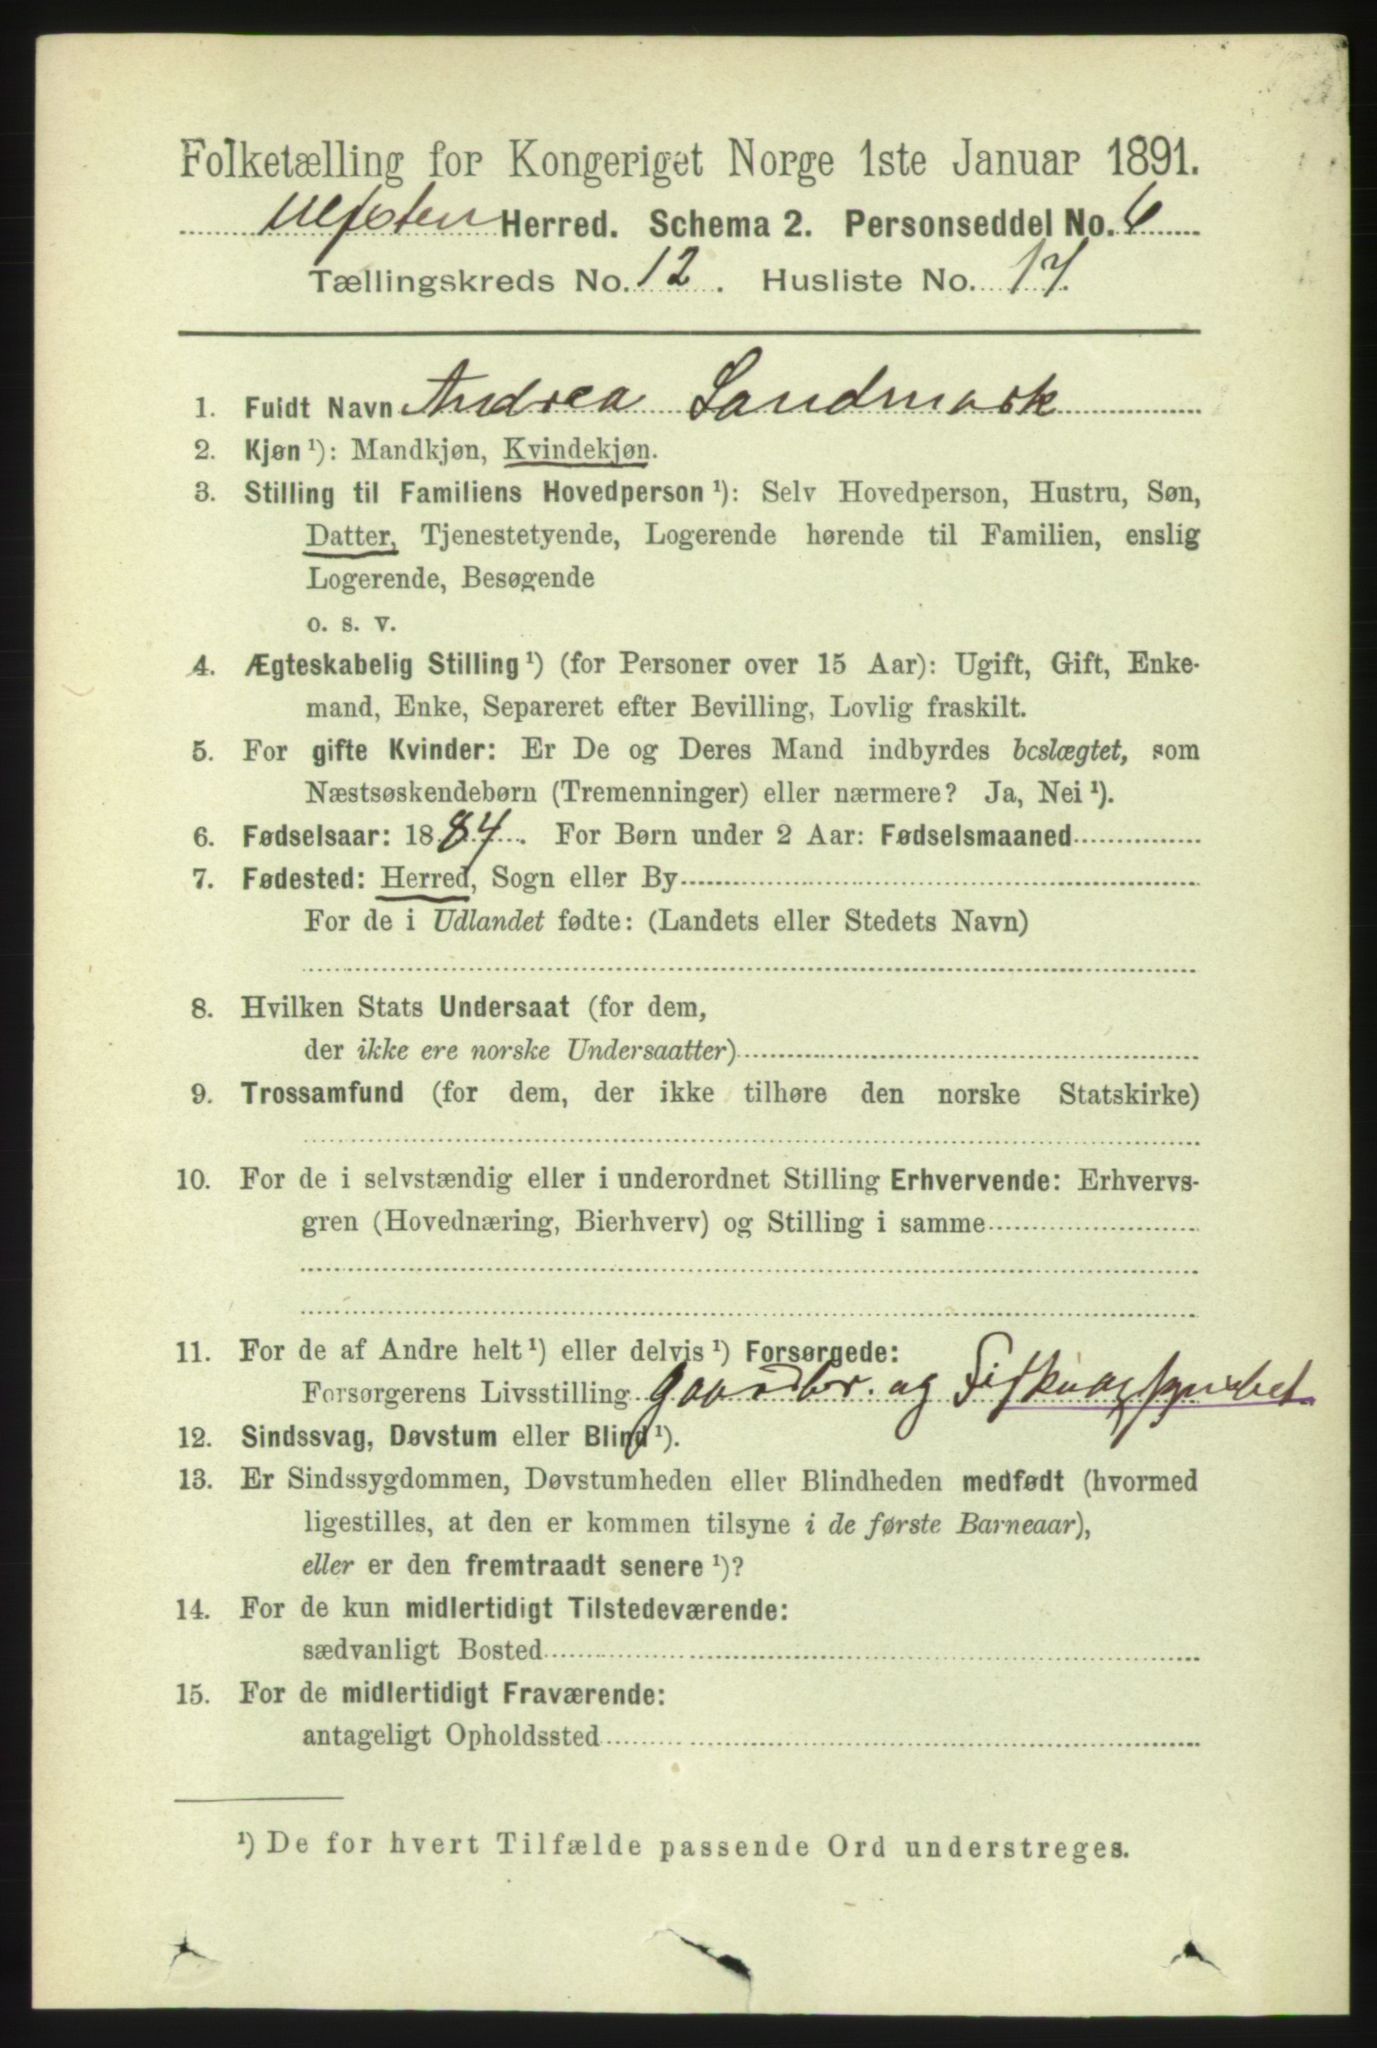 Folketælling for Kongeriget Norge 1ste Januar 1891.
Ulfsten Herred. Schema 2. Personseddel No. 6
Tællingskreds No. 12. Husliste No. 17.
1. Fuldt Navn Andrea Landmark
2. Kjøn ¹): Mandkjøn, Kvindekjøn.
3. Stilling til Familiens Hovedperson ¹): Selv Hovedperson, Hustru, Søn,
Datter, Tjenestetyende, Logerende hørende til Familien, enslig
Logerende, Besøgende
o. s. v.
4. Ægteskabelig Stilling ¹) (for Personer over 15 Aar): Ugift, Gift, Enke-
mand, Enke, Separeret efter Bevilling, Lovlig fraskilt.
5. For gifte Kvinder: Er De og Deres Mand indbyrdes beslægtet, som
Næstsøskendebørn (Tremenninger) eller nærmere? Ja, Nei ¹).
6. Fødselsaar: 1884. For Børn under 2 Aar: Fødselsmaaned
7. Fødested: Herred, Sogn eller By
For de i Udlandet fødte: (Landets eller Stedets Navn)
8. Hvilken Stats Undersaat (for dem,
der ikke ere norske Undersaatter)
9. Trossamfund (for dem, der ikke tilhøre den norske Statskirke)
10. For de i selvstændig eller i underordnet Stilling Erhvervende: Erhvervs-
gren (Hovednæring, Bierhverv) og Stilling i samme
11. For de af Andre helt ¹) eller delvis ¹) Forsørgede:
Forsørgerens Livsstilling Gaardbr. og
12. Sindssvag, Døvstum eller Blind ¹).
13. Er Sindssygdommen, Døvstumheden eller Blindheden medfødt (hvormed
ligestilles, at den er kommen tilsyne i de første Barneaar),
eller er den fremtraadt senere ¹)?
14. For de kun midlertidigt Tilstedeværende:
sædvanligt Bosted
15. For de midlertidigt Fraværende:
antageligt Opholdssted
¹) De for hvert Tilfælde passende Ord understreges.